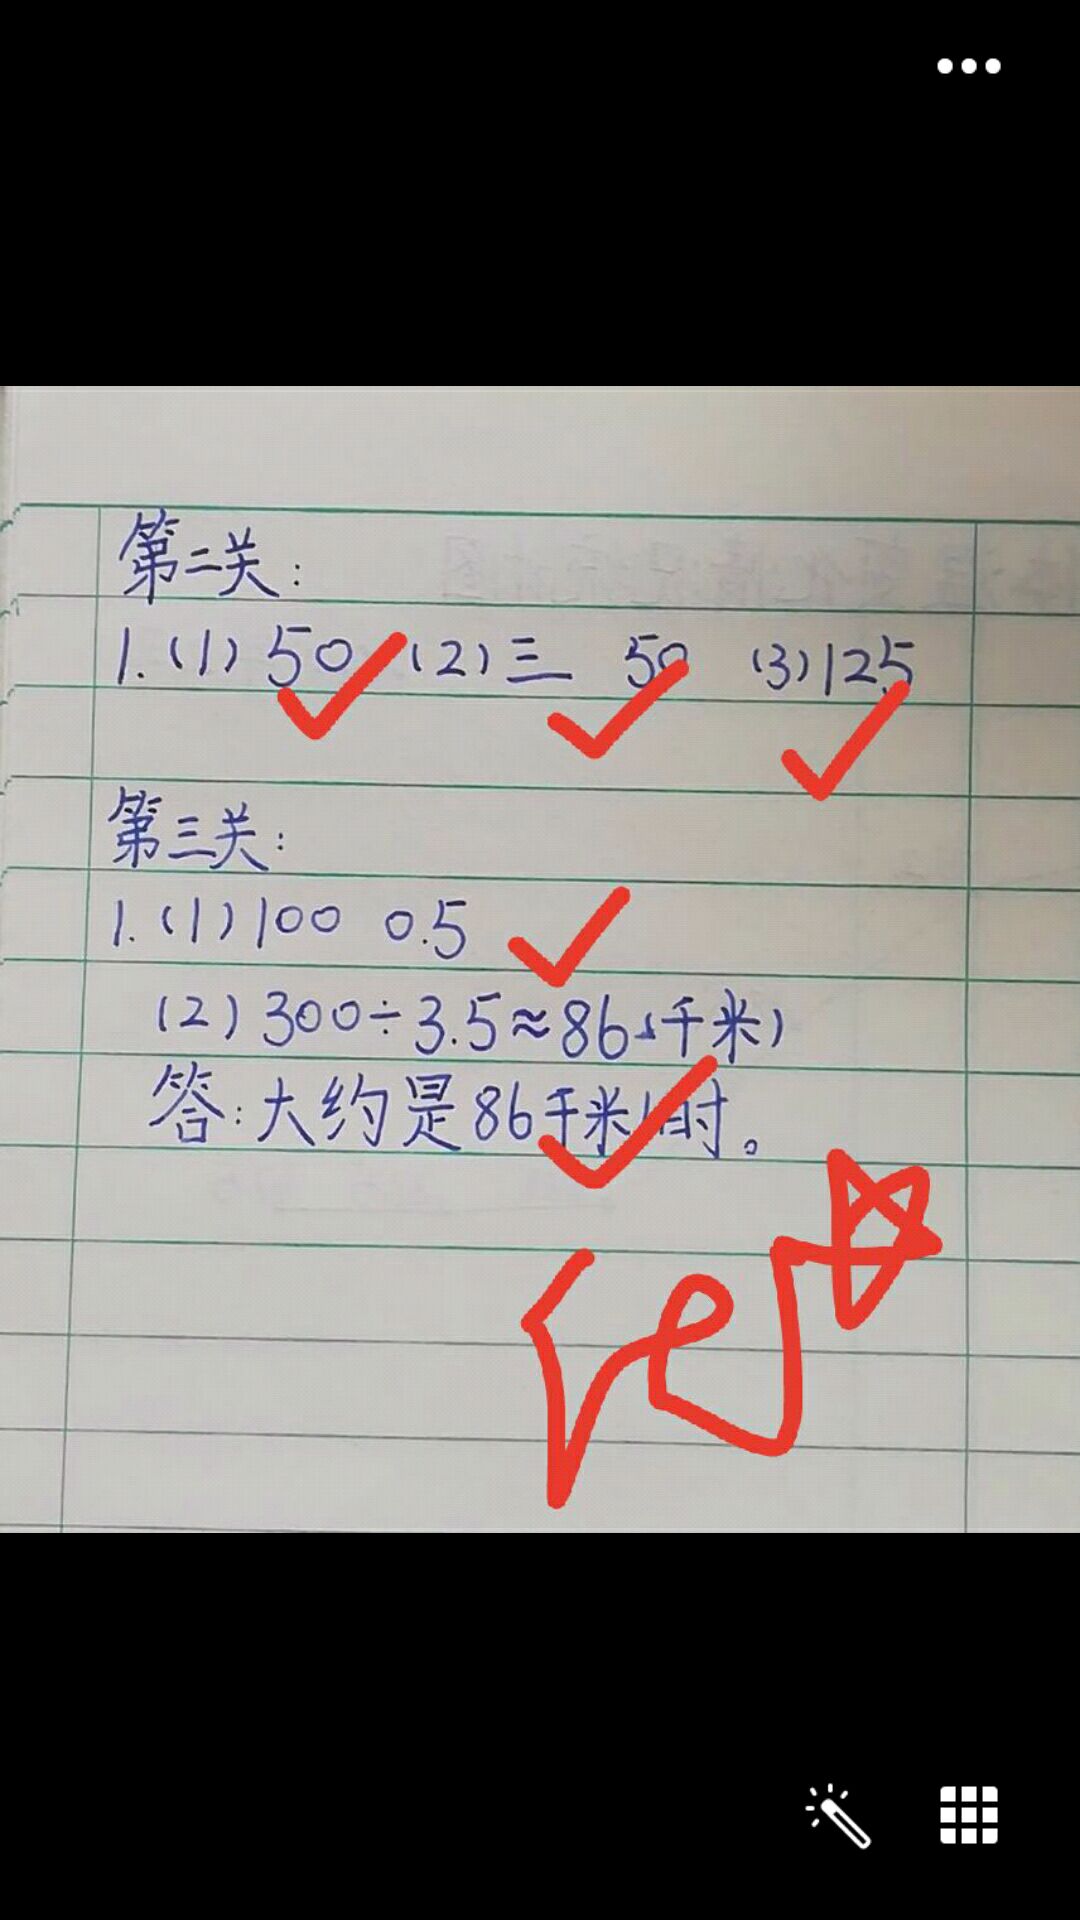 第二关：
1.(1)50 (2)三 50 (3)125
第三关：
1.(1)100 0.5
(2)300÷3.5≈86(千米)
答：大约是86千米/时。